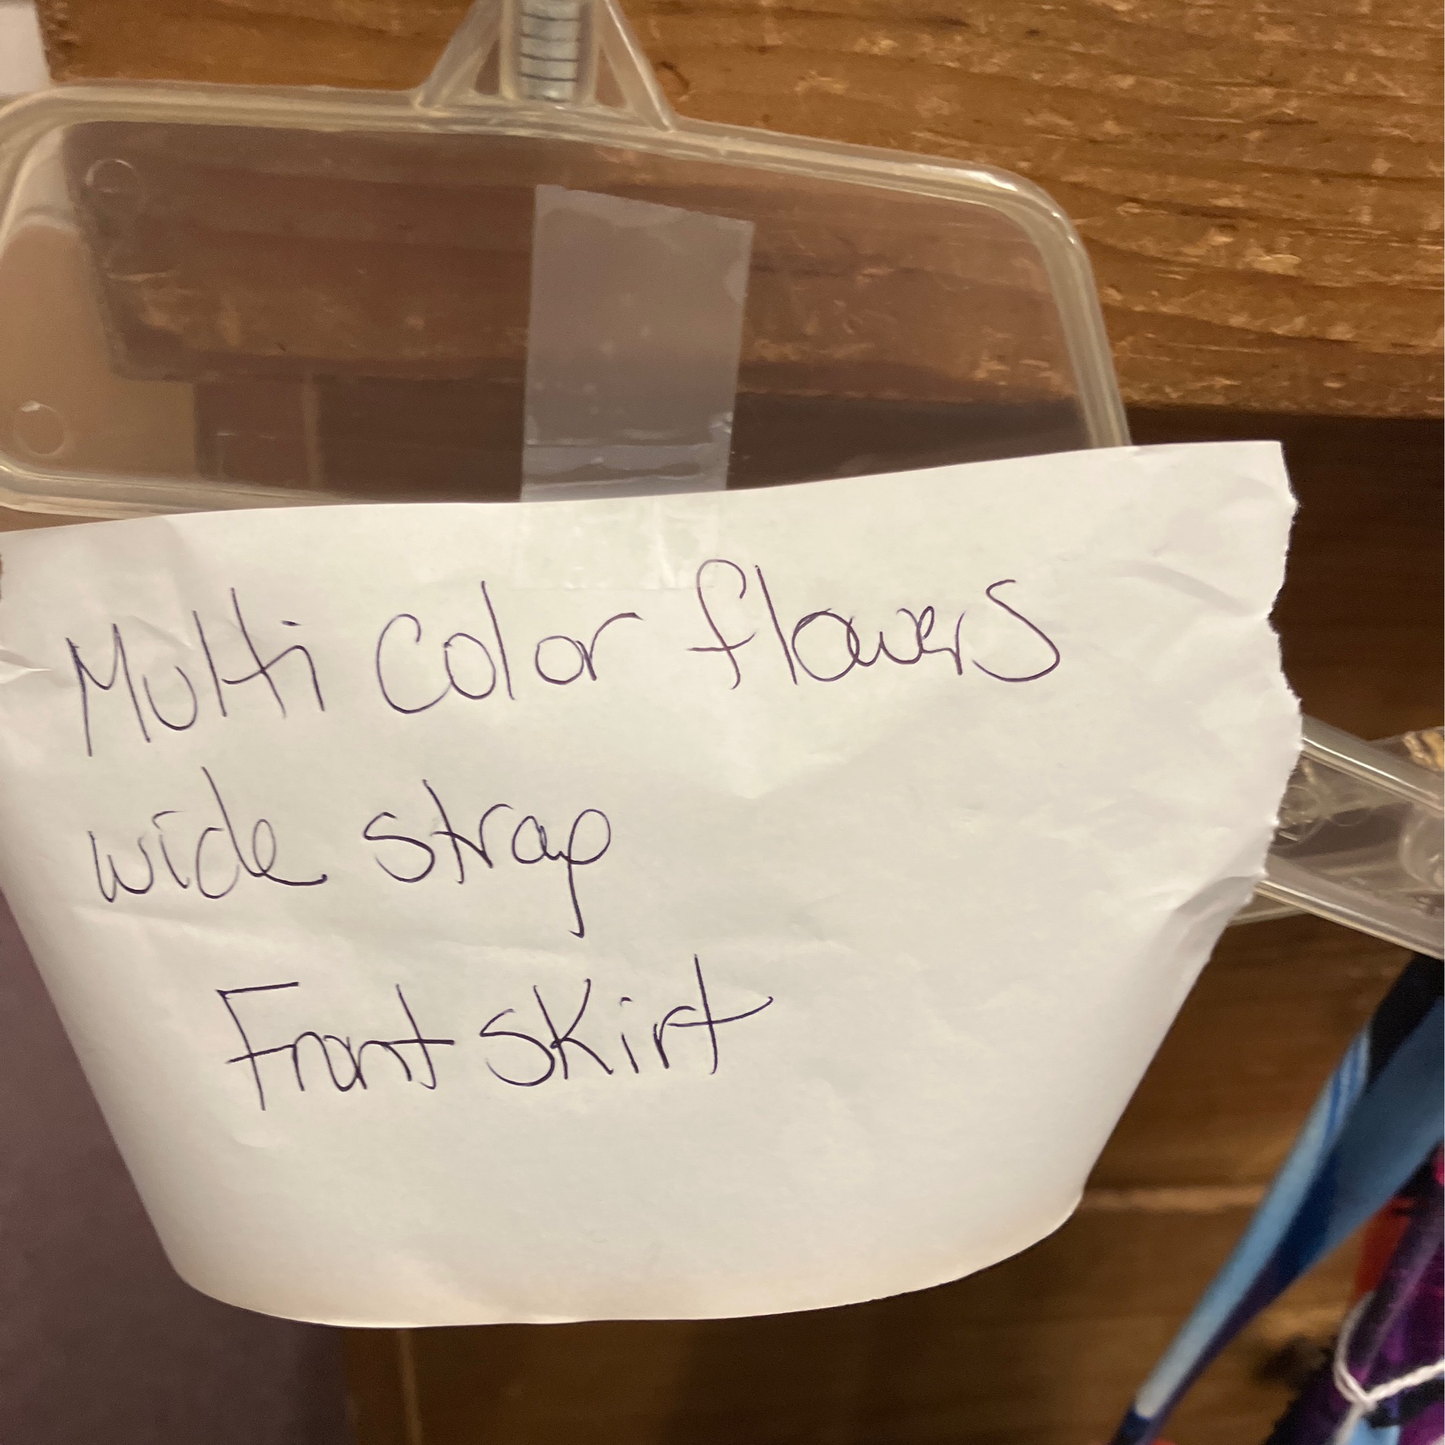 Multi color flowers
wide strap
Front skirt